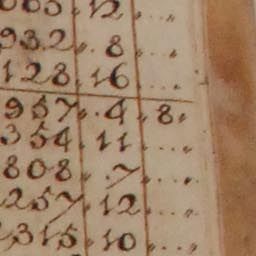 12 „ ...„
932 „ 8 „ ...„
128 „ 16 „ ...
957 „ 4 „ 8 „
354 „ 11 „ ...„
808 „ 7 „ ...„
257 „ 12 „ ...„
315 „ 10 „ ...„